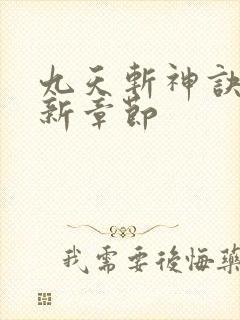 九天斬神訣
新章節
我需要後悔藥